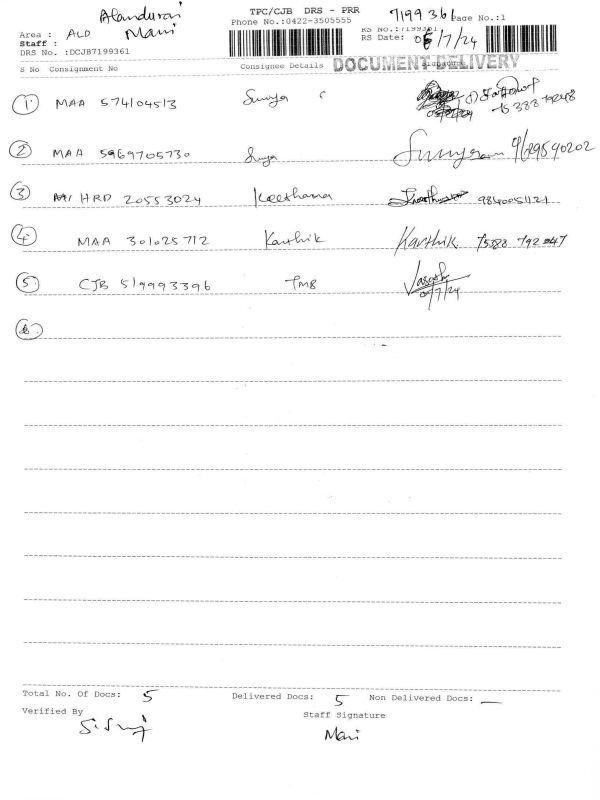 Alandurai TPC/CJB DRS - PRR 7199361 Page No.:1
Phone No.:0422-3505555
Area : ALD Mani RS No.:7199361
Staff : RS Date: 05/7/24
DRS No. :DCJB7199361
DOCUMENT DELIVERY
S No Consignment No Consignee Details Signature
① MAA 574104513 Surya
② MAA 5969705730 Surya 9629590202
③ HRD 20553024 Keerthana 9840051121
④ MAA 301025712 Karthik Karthik 75388 792 047
⑤ CJB 519993396 TMB
05/7/24
⑥
Total No. Of Docs: 5 Delivered Docs: 5 Non Delivered Docs: —
Verified By Staff Signature
Mani